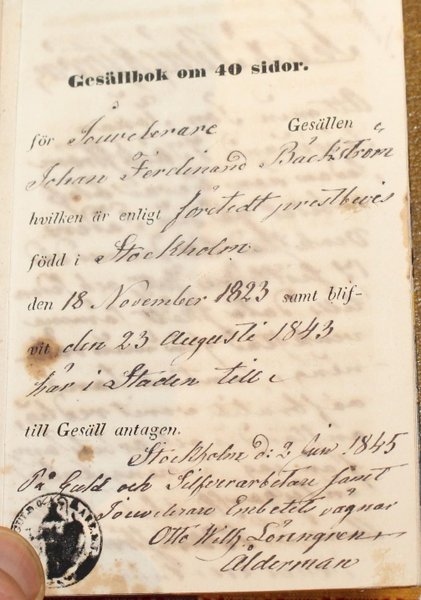 Gesällbok om 40 sidor.
för Jouvelerare Gesällen
Johan Ferdinand Bäckström
hvilken är enligt företedt prestbevis
född i Stockholm
den 18 November 1823 samt blif-
vit den 23 Augusti 1843
här i Staden till
till Gesäll antagen.
Stockholm d: 2 Juni 1845
På Guld och Silfverarbetare samt
Jouvelerare Embetets vägnar
Otto Wilh Lönngren
Ålderman